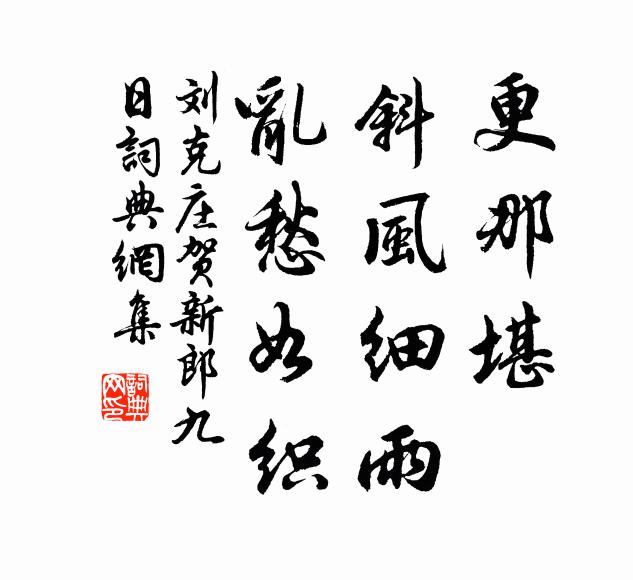 更那堪
斜風细雨
亂愁如织
刘克庄贺新郎九
日詞典網集
詞典
网印